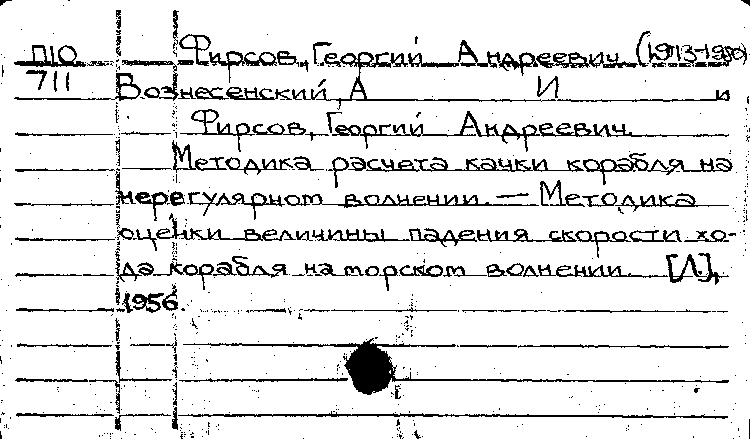 П10 Фирсов, Георгий Андреевич (1913-1980)
711 Вознесенский, А И и
Фирсов, Георгий Андреевич.
Методика расчета качки корабля на
нерегулярном волнении. — Методика
оценки величины падения скорости хо-
да корабля на морском волнении. [Л.],
1956.